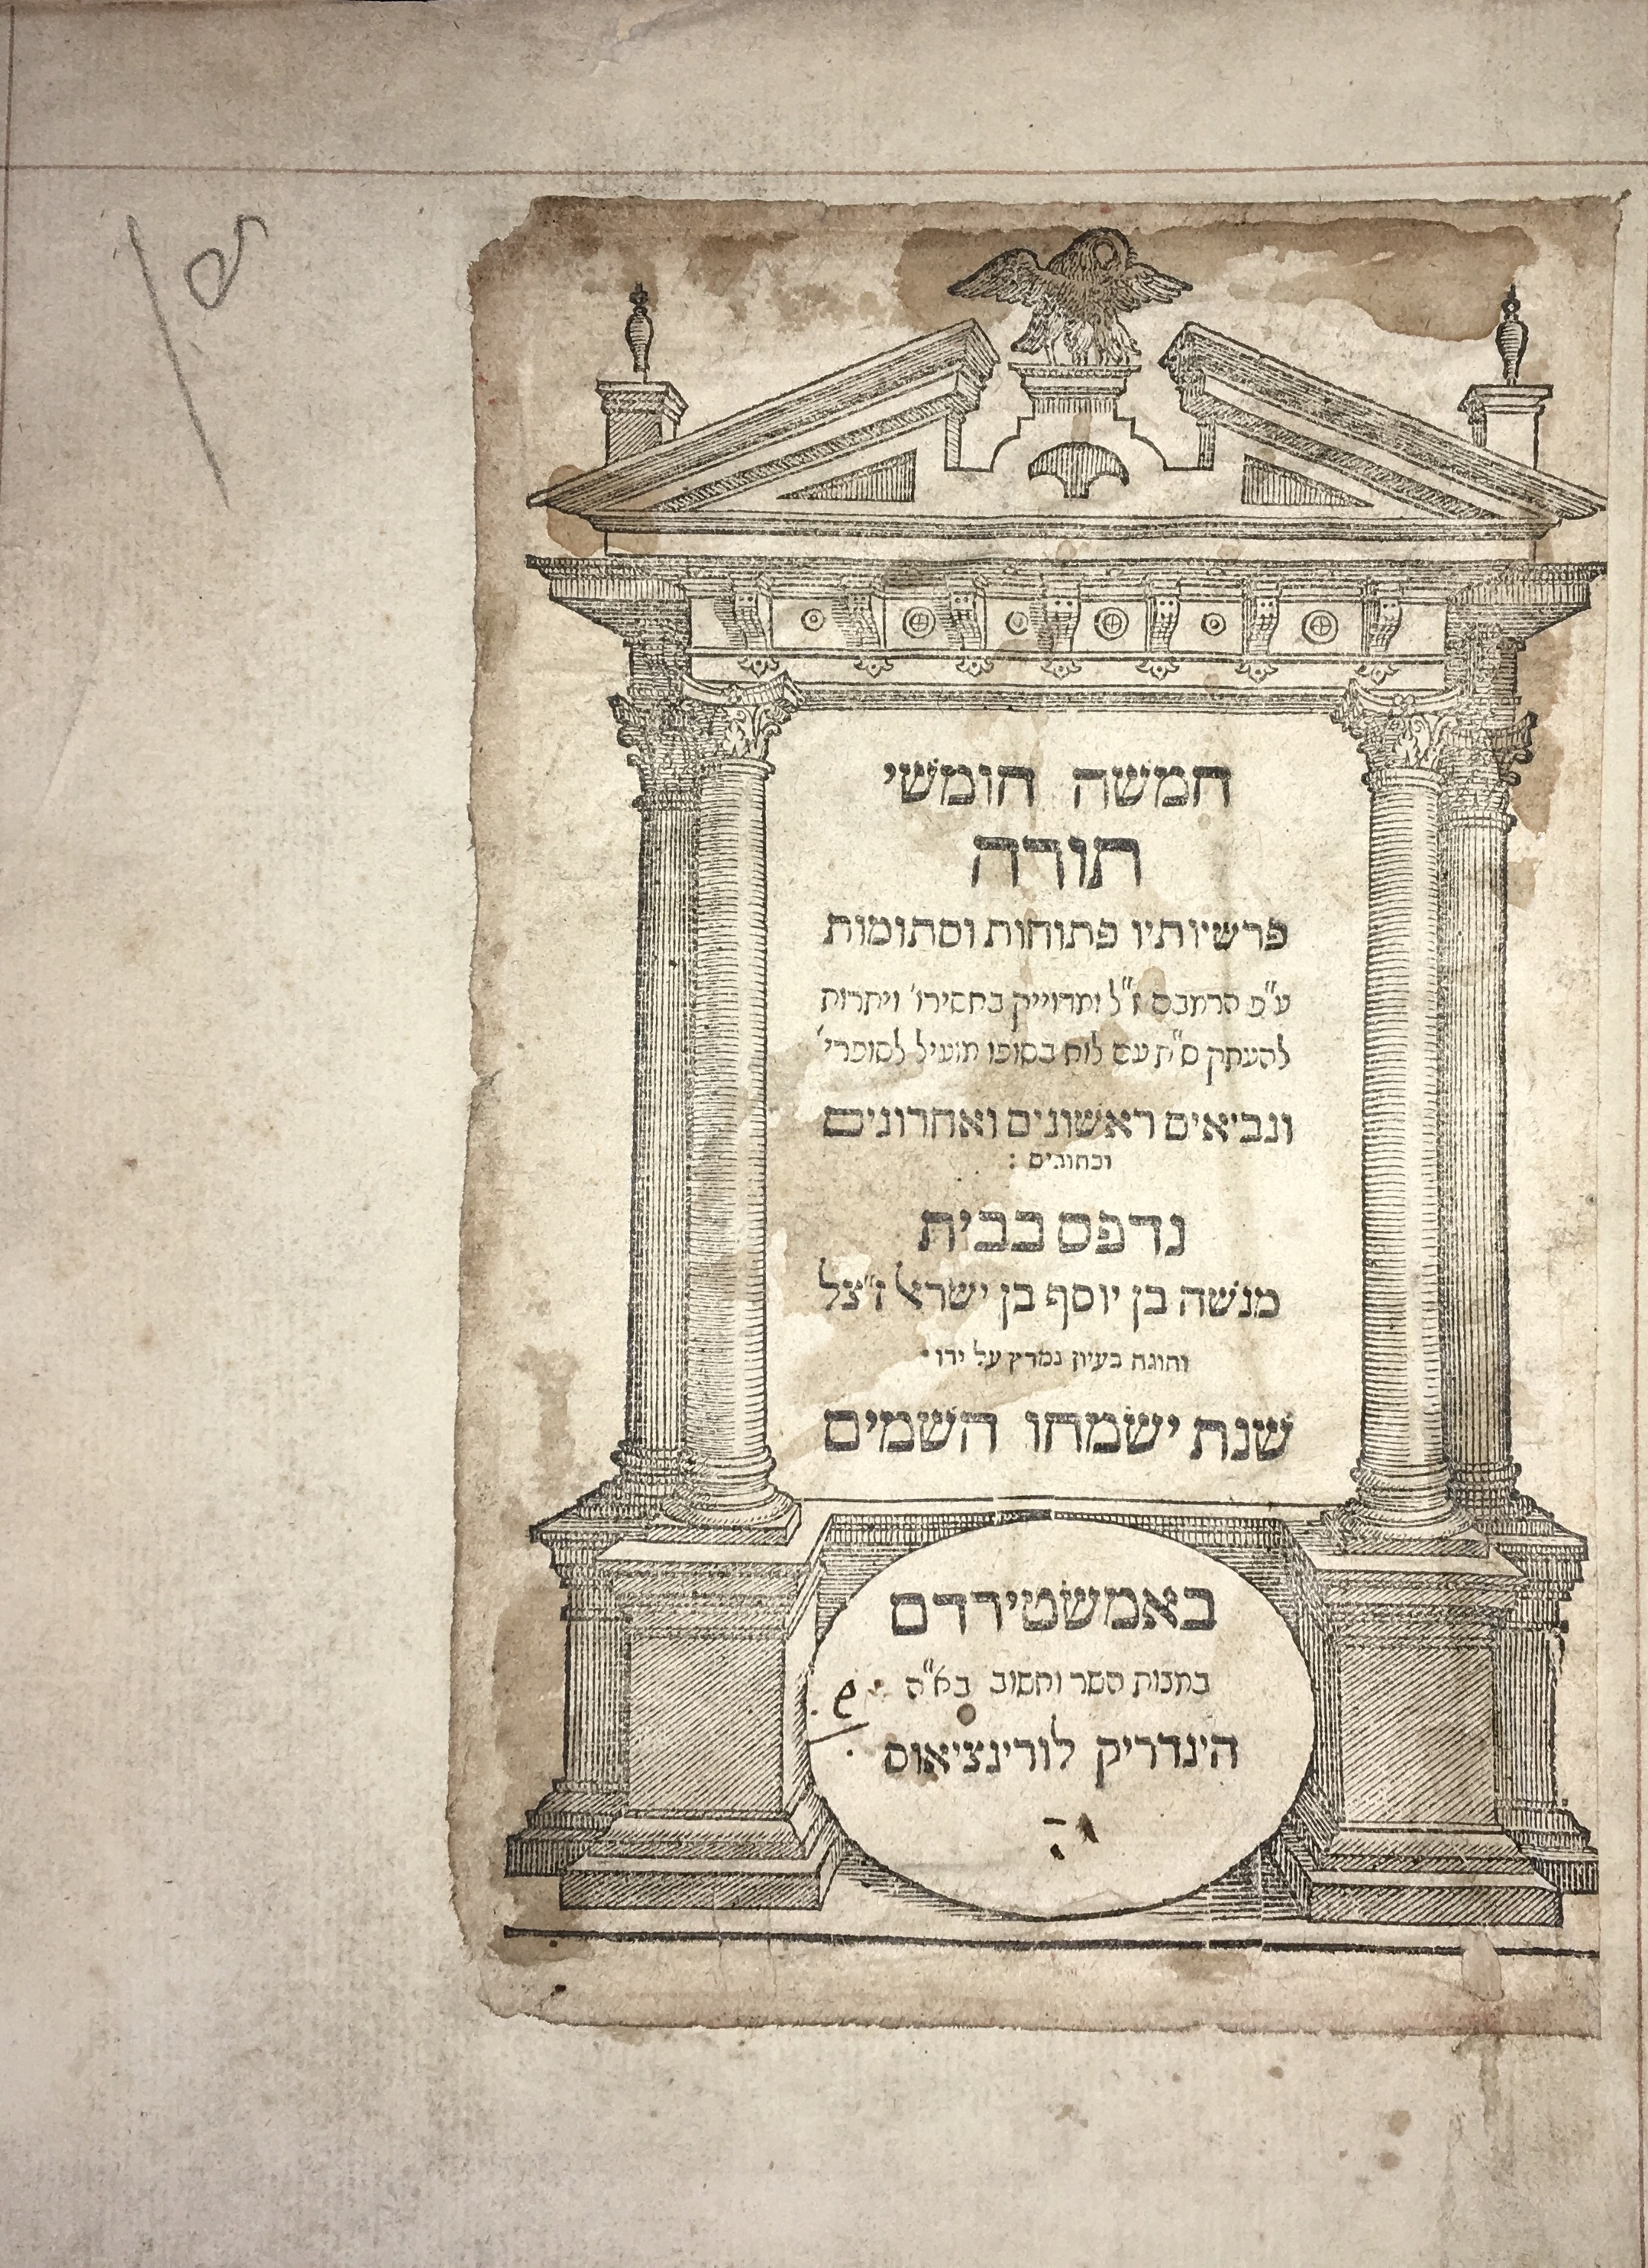 חמשה חומשי
תורה
פרשיותיו פתוחות וסתומות
ע"פ הרמבם ז"ל ומדוייק בחסירו' ויתרות
להעתק ס"ת עם לוח בסופו מועיל לסופרי'
ונביאים ראשונים ואחרונים
וכתובים :
נדפס בבית
מנשה בן יוסף בן ישראל ז"צל
והוגה בעיון נמרץ על ידו
שנת ישמחו השמים
באמשטירדם
במצות השר וחשוב בא"ה
הינדריק לורינציאוס